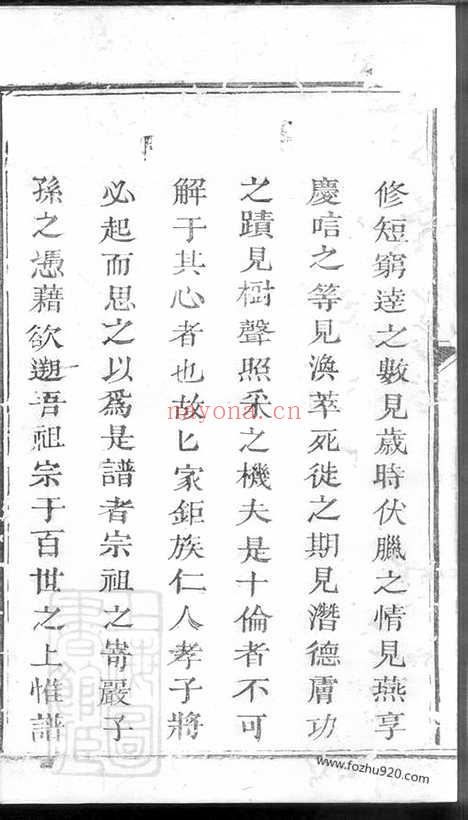 修短窮達之數見歲時伏臘之情見燕享
慶唁之等見渙萃死徙之期見潛德膚功
之蹟見樹聲照采之機夫是十倫者不可
解于其心者也故匕家鉅族仁人孝子將
必起而思之以爲是譜者宗祖之嵜嚴子
孫之憑藉欲遡吾祖宗于百世之上惟譜
nayona.cn
www.fozhu920.com